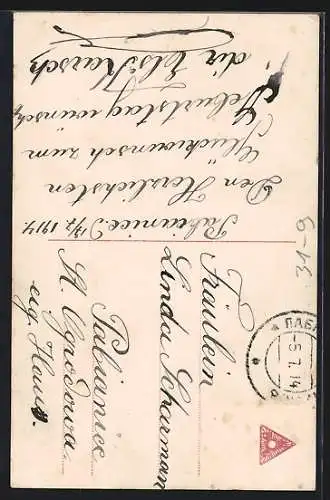 Pabianice D 18/7 1914
Den Herzlichsten
Glückwunsch zum
Geburtstag wünscht
dir Els Karsch
Fräulein
Linda Scharman
Pabianice
St. Ogrodowa
eig. Haus.
31-9
-5.7.14